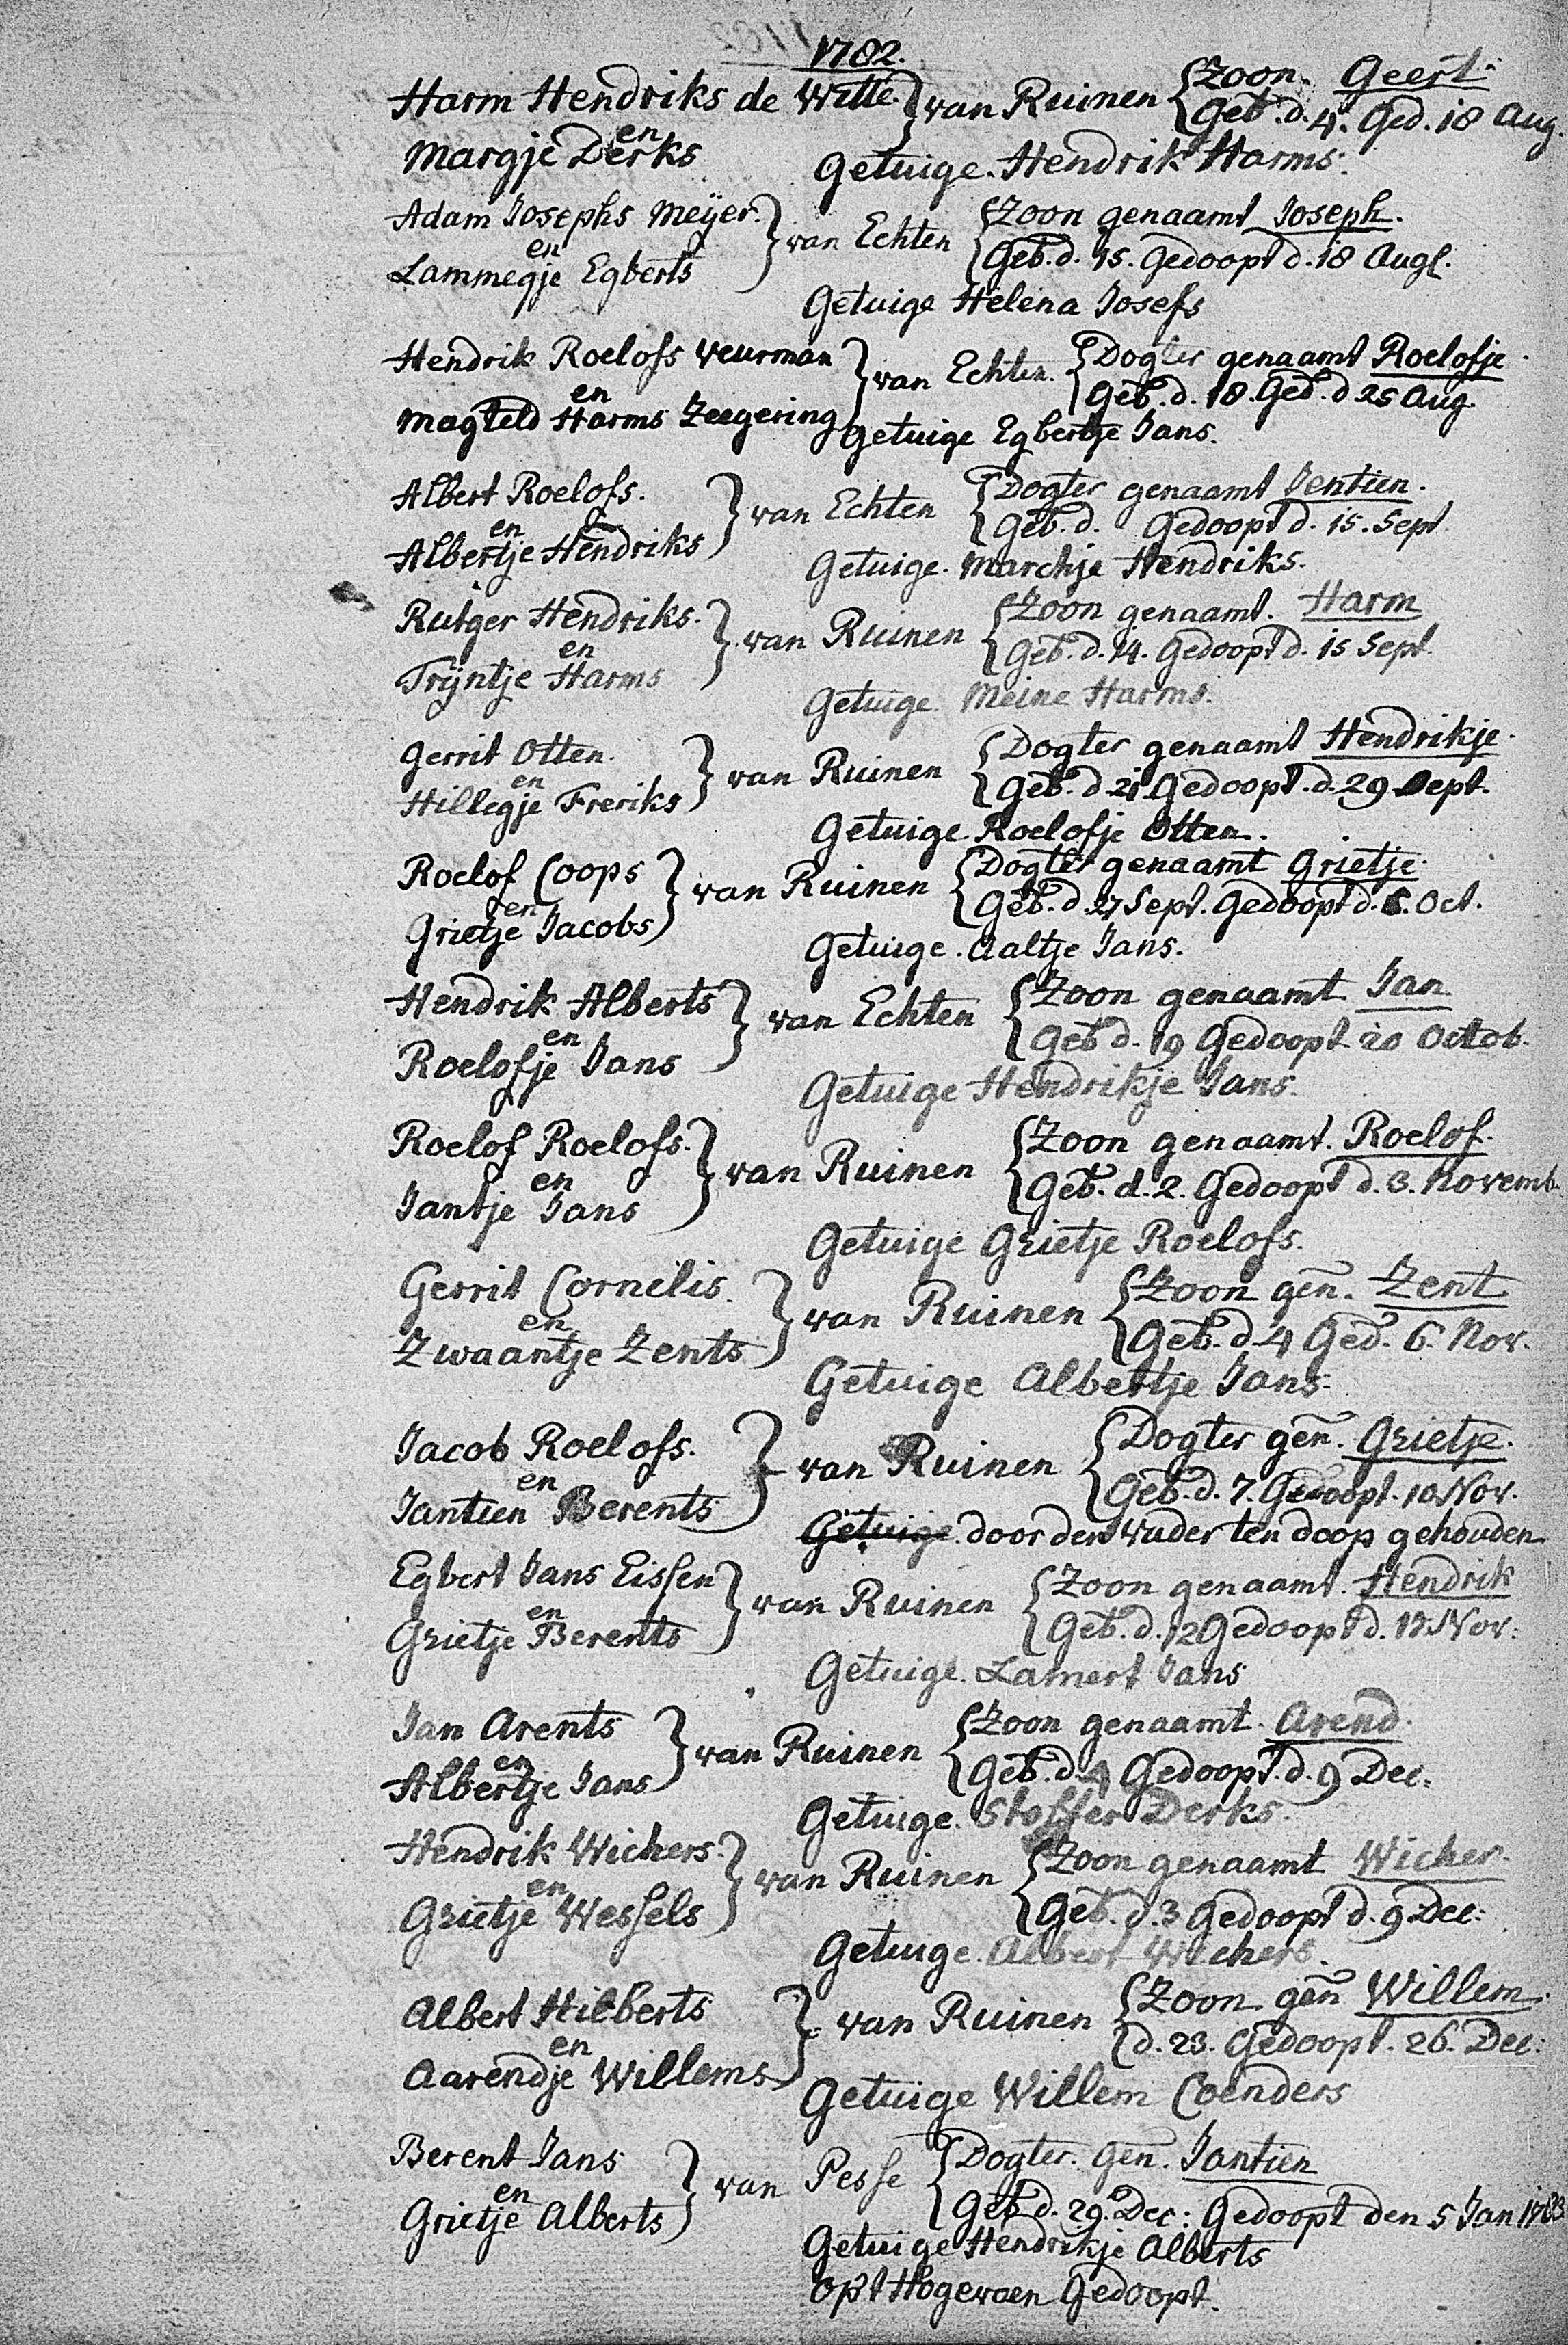 1782.
Harm Hendriks de Witte } van Ruinen { Zoon. Geert.
en Geb. d. 4. Ged. 18 Aug.
Margje Derks
Getuige. Hendrik Harms.
Adam Josephs Meÿer. } van Echten { Zoon genaamt Joseph.
en Geb. d. 15. Gedoopt d. 18 Augt.
Lammegje Egberts
Getuige Helena Josefs
Hendrik Roelofs Veurman } van Echten. { Dogter genaamt Roelofje.
en Geb. d. 18. Ged. d 25 Aug.
Magteld Harms Zeegering
Getuige Egbertje Jans.
Albert Roelofs. } van Echten { Dogter genaamt Jentien.
en Geb. d. Gedoopt d. 15. Sept.
Albertje Hendriks
Getuige. Marchje Hendriks.
Rutger Hendriks. } van Ruinen { Zoon genaamt. Harm
en Geb. d. 14. Gedoopt d. 15 Sept.
Trÿntje Harms
Getuige Meine Harms.
Gerrit Otten. } van Ruinen { Dogter genaamt Hendrikje.
en Geb. d. 21. Gedoopt. d. 29 Sept.
Hillegje Freriks
Getuige. Roelofje Otten.
Roelof Coops } van Ruinen { Dogter genaamt Grietje.
en Geb. d. 27 Sept. Gedoopt d. 6. Oct.
Grietje Jacobs
Getuige. Aaltje Jans.
Hendrik Alberts } van Echten { Zoon genaamt Jan
en Geb d. 19 Gedoopt 20 Octob.
Roelofje Jans
Getuige Hendrikje Jans.
Roelof Roelofs. } van Ruinen { Zoon genaamt. Roelof.
en Geb. d. 2. Gedoopt d. 3. Novemb.
Jantje Jans
Getuige Grietje Roelofs.
Gerrit Cornelis. } van Ruinen { Zoon geñ. Zent
en Geb. d. 4 Ged. 6. Nov.
Zwaantje Zents
Getuige Albertje Jans.
Jacob Roelofs. } van Ruinen { Dogter geñ. Grietje.
en Geb. d. 7. Gedoopt. 10 Nov.
Jantien Berents
Getuige. door den vader ten doop gehouden
Egbert Jans Eissen } van Ruinen { Zoon genaamt. Hendrik
en Geb. d. 12 Gedoopt d. 17 Nov.
Grietje Berents
Getuige. Lamert Jans
Jan Arents } van Ruinen { Zoon genaamt. Arend.
en Geb. d. 4 Gedoopt. d. 9 Dec.
Albertje Jans
Getuige. Stoffer Derks.
Hendrik Wichers. } van Ruinen { Zoon genaamt Wicher.
en Geb. d. 3 Gedoopt d. 9 Dec:
Grietje Wessels
Getuige. Albert Wichers.
Albert Hilberts } van Ruinen { Zoon geñ Willem.
en d. 23. Gedoopt. 26. Dec:
Aarendje Willems
Getuige Willem Coenders
Berent Jans } van Pesse { Dogter. geñ. Jantien
en Geb d. 29. Dec: Gedoopt den 5 Jan 1783
Grietje Alberts
Getuige Hendrikje Alberts
op 't Hogeveen Gedoopt.